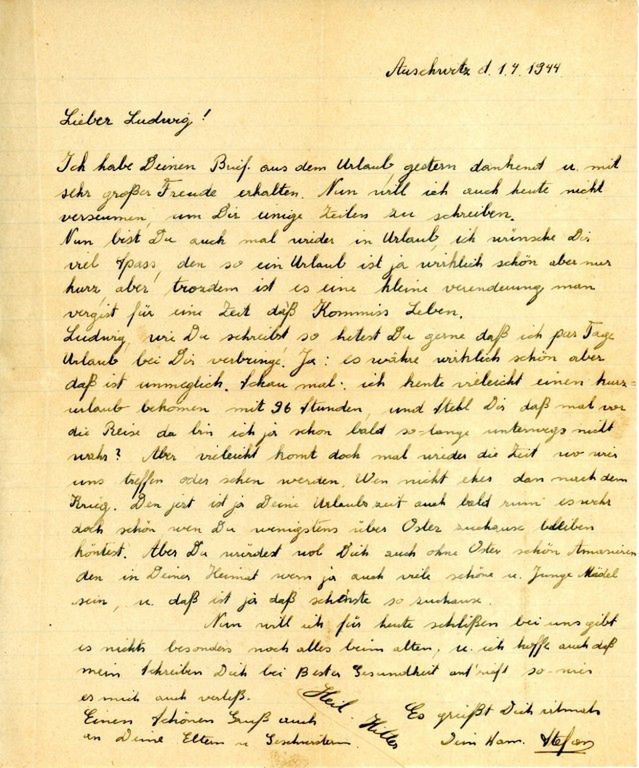 Auschwitz d. 1.4.1944
Lieber Ludwig!
Ich habe Deinen Brief. aus dem Urlaub gestern dankend u. mit
sehr großer Freude erhalten. Nun will ich auch heute nicht
verseumen, um Dir einige Zeilen zu schreiben.
Nun bist Du auch mal wieder in Urlaub, ich wünsche Dir
viel Spass, den so ein Urlaub ist ja wirklich schön aber nur
kurz aber trozdem ist es eine kleine verenderung man
vergist für eine Zeit daß Kommiss Leben.
Ludwig, wie Du schreibst so hetest Du gerne daß ich par Tage
Urlaub bei Dir verbringe. Ja: es währe wirklich schön aber
daß ist unmeglich. Schau mal: ich kente vieleicht einen kurz=
urlaub bekomen mit 96 Stunden, und Stehl Dir daß mal vor
die Reise da bin ich ja schon bald so-lange unterwegs nicht
wahr? Aber vieleicht komt doch mal wieder die Zeit wo wir
uns treffen oder sehen werden. Wen nicht eher dan nach dem
Krieg. Den jezt ist ja Deine Urlaubszeit auch bald rum es wehr
doch schön wen Du wenigstens über Oster zuhause bleiben
köntest. Aber Du würdest wol Dich auch ohne Oster schön Amiesieren
den in Deiner Heimat wern ja auch viele schöne u. Junge Mädel
sein, u. daß ist ja daß schenste so zuhause.
Nun will ich für heute schlißen bei uns gibt
es nichts besonders noch alles beim alten, u. ich hoffe auch daß
mein Schreiben Dich bei Bester Gesundheit antrift so-wies
es mich auch verleß.
Heil Hitler
Es grießt Dich
Einen Schönen Gruß auch
an Deine Eltern u Geschwistern.
Dein Kam. Stefan